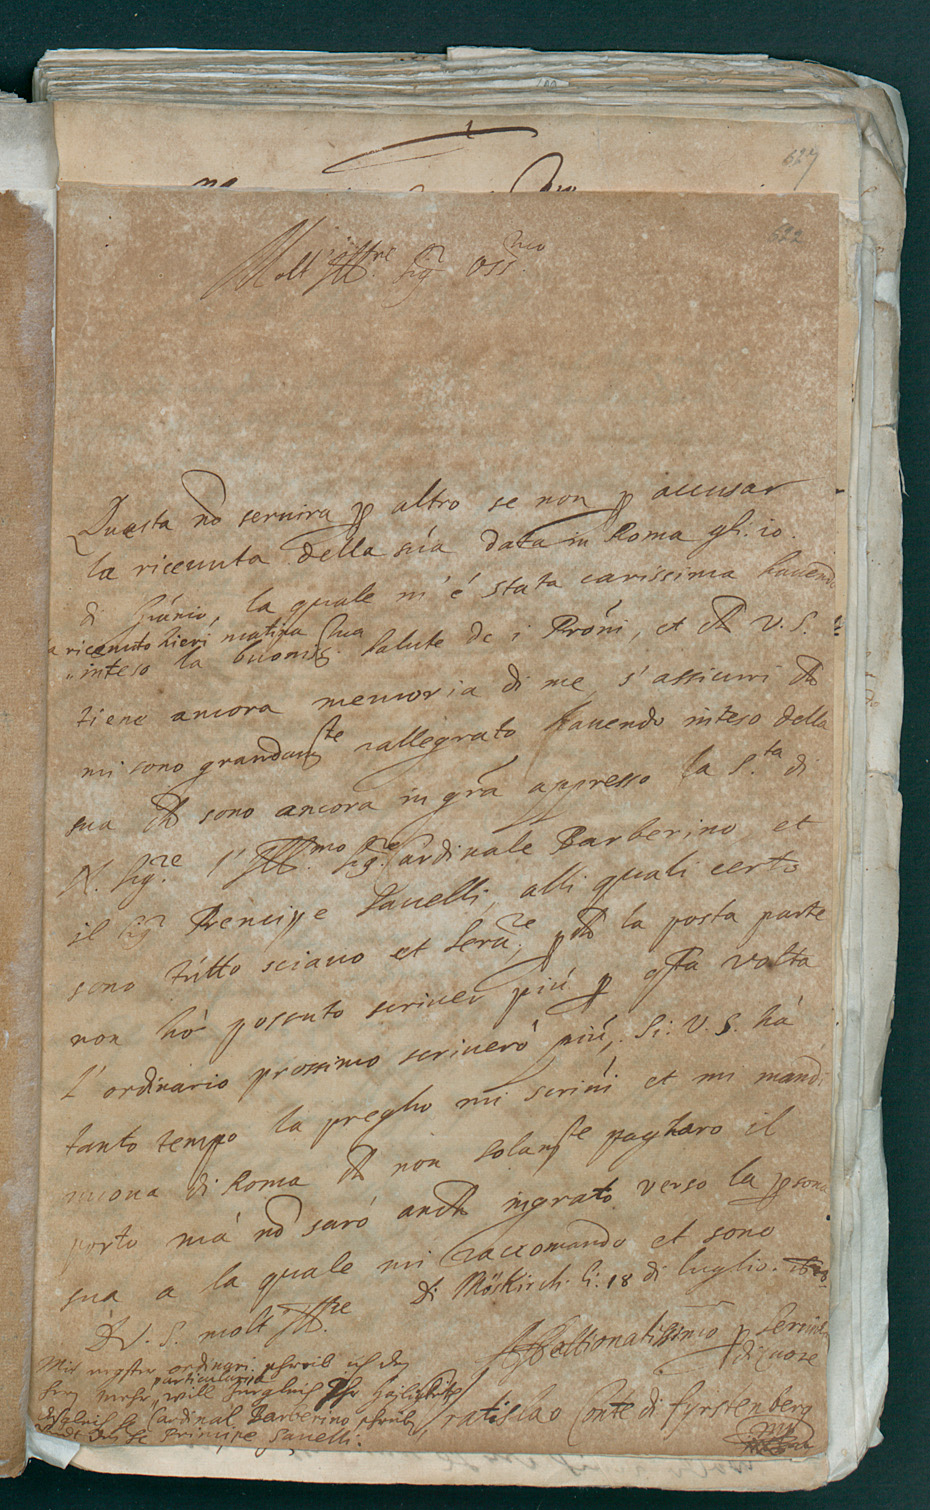 627
622
Molt Ill.re Sig.r Oss.mo
Questa nõ seruira p altro se non p accusar
la riceuuta della sua data in Roma gli. 10.
di Giunio, la quale m'é stata carissima hauendo
riceuuto hieri matina
inteso la buona sua salute de i Prõni, et ch V. S.
tiene ancora memoria di me, s'assicuri ch
mi sono grandam.te rallegrato hauendo inteso della
sua ch sono ancora in gra appresso la S.ta di
N. Sig.re l' Ill.mo Sig.re Cardinale Barberino et
il Sig.r Prencipe Sauelli, alli quali certo
sono tutto sciauo et Seru.re, p ch la posta parte
non hò possuto scriuer piú p qsta volta
l'ordinario prossimo scriuerò piú, Si: V. S. hà
tanto tempo la pregho mi scriui et mi mandi
nuoua di Roma ch non solam.te pagharo il
porto mà nõ saró anch ingrato verso la psona
sua a la quale mi raccomando et sono
D V. S. molt Ill.re
Di Möskirch li: 18 di luglio.
Affettionatissimo p seruir
di cuore
Wratislao Conte di Fürstenberg
mp
Mit negster ordinari schreib ich dem
herrn mehr, particularia will
Cardinal Barberino
Principe Sauelli.